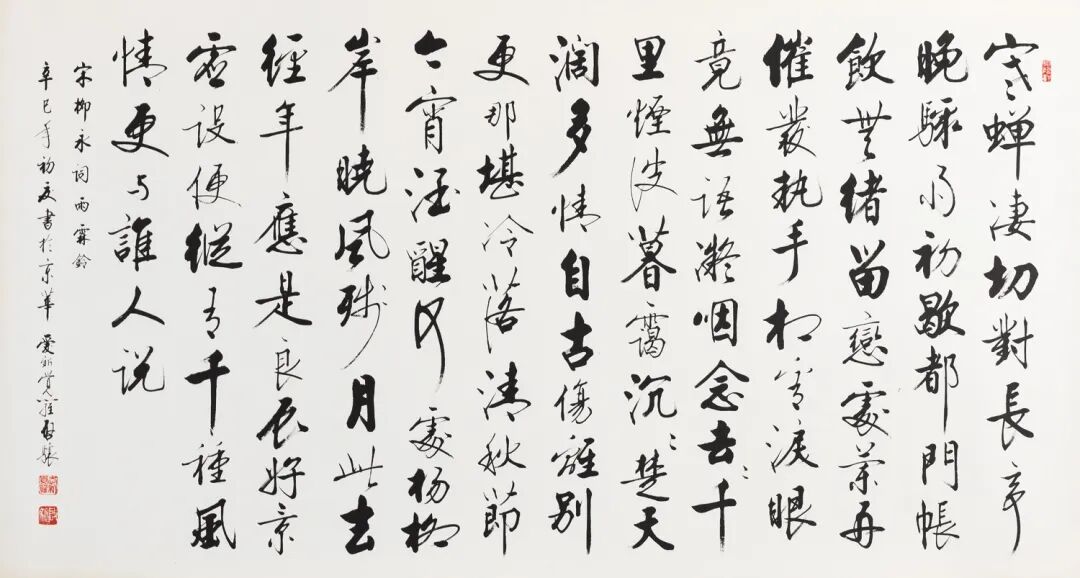 寒蝉凄切對長亭
晚驟雨初歇都門帳
飲無緒留戀處蘭舟
催發执手相看淚眼
竟無語凝咽念去々千
里煙波暮靄沉々楚天
濶多情自古傷離别
更那堪冷落清秋節
今宵酒醒何處杨柳
岸曉風殘月此去
經年應是良辰好景
虛設便縱有千種風
情更与誰人说
宋柳永詞雨霖鈴
辛巳年初夏書於京華 愛新覺羅啟驤